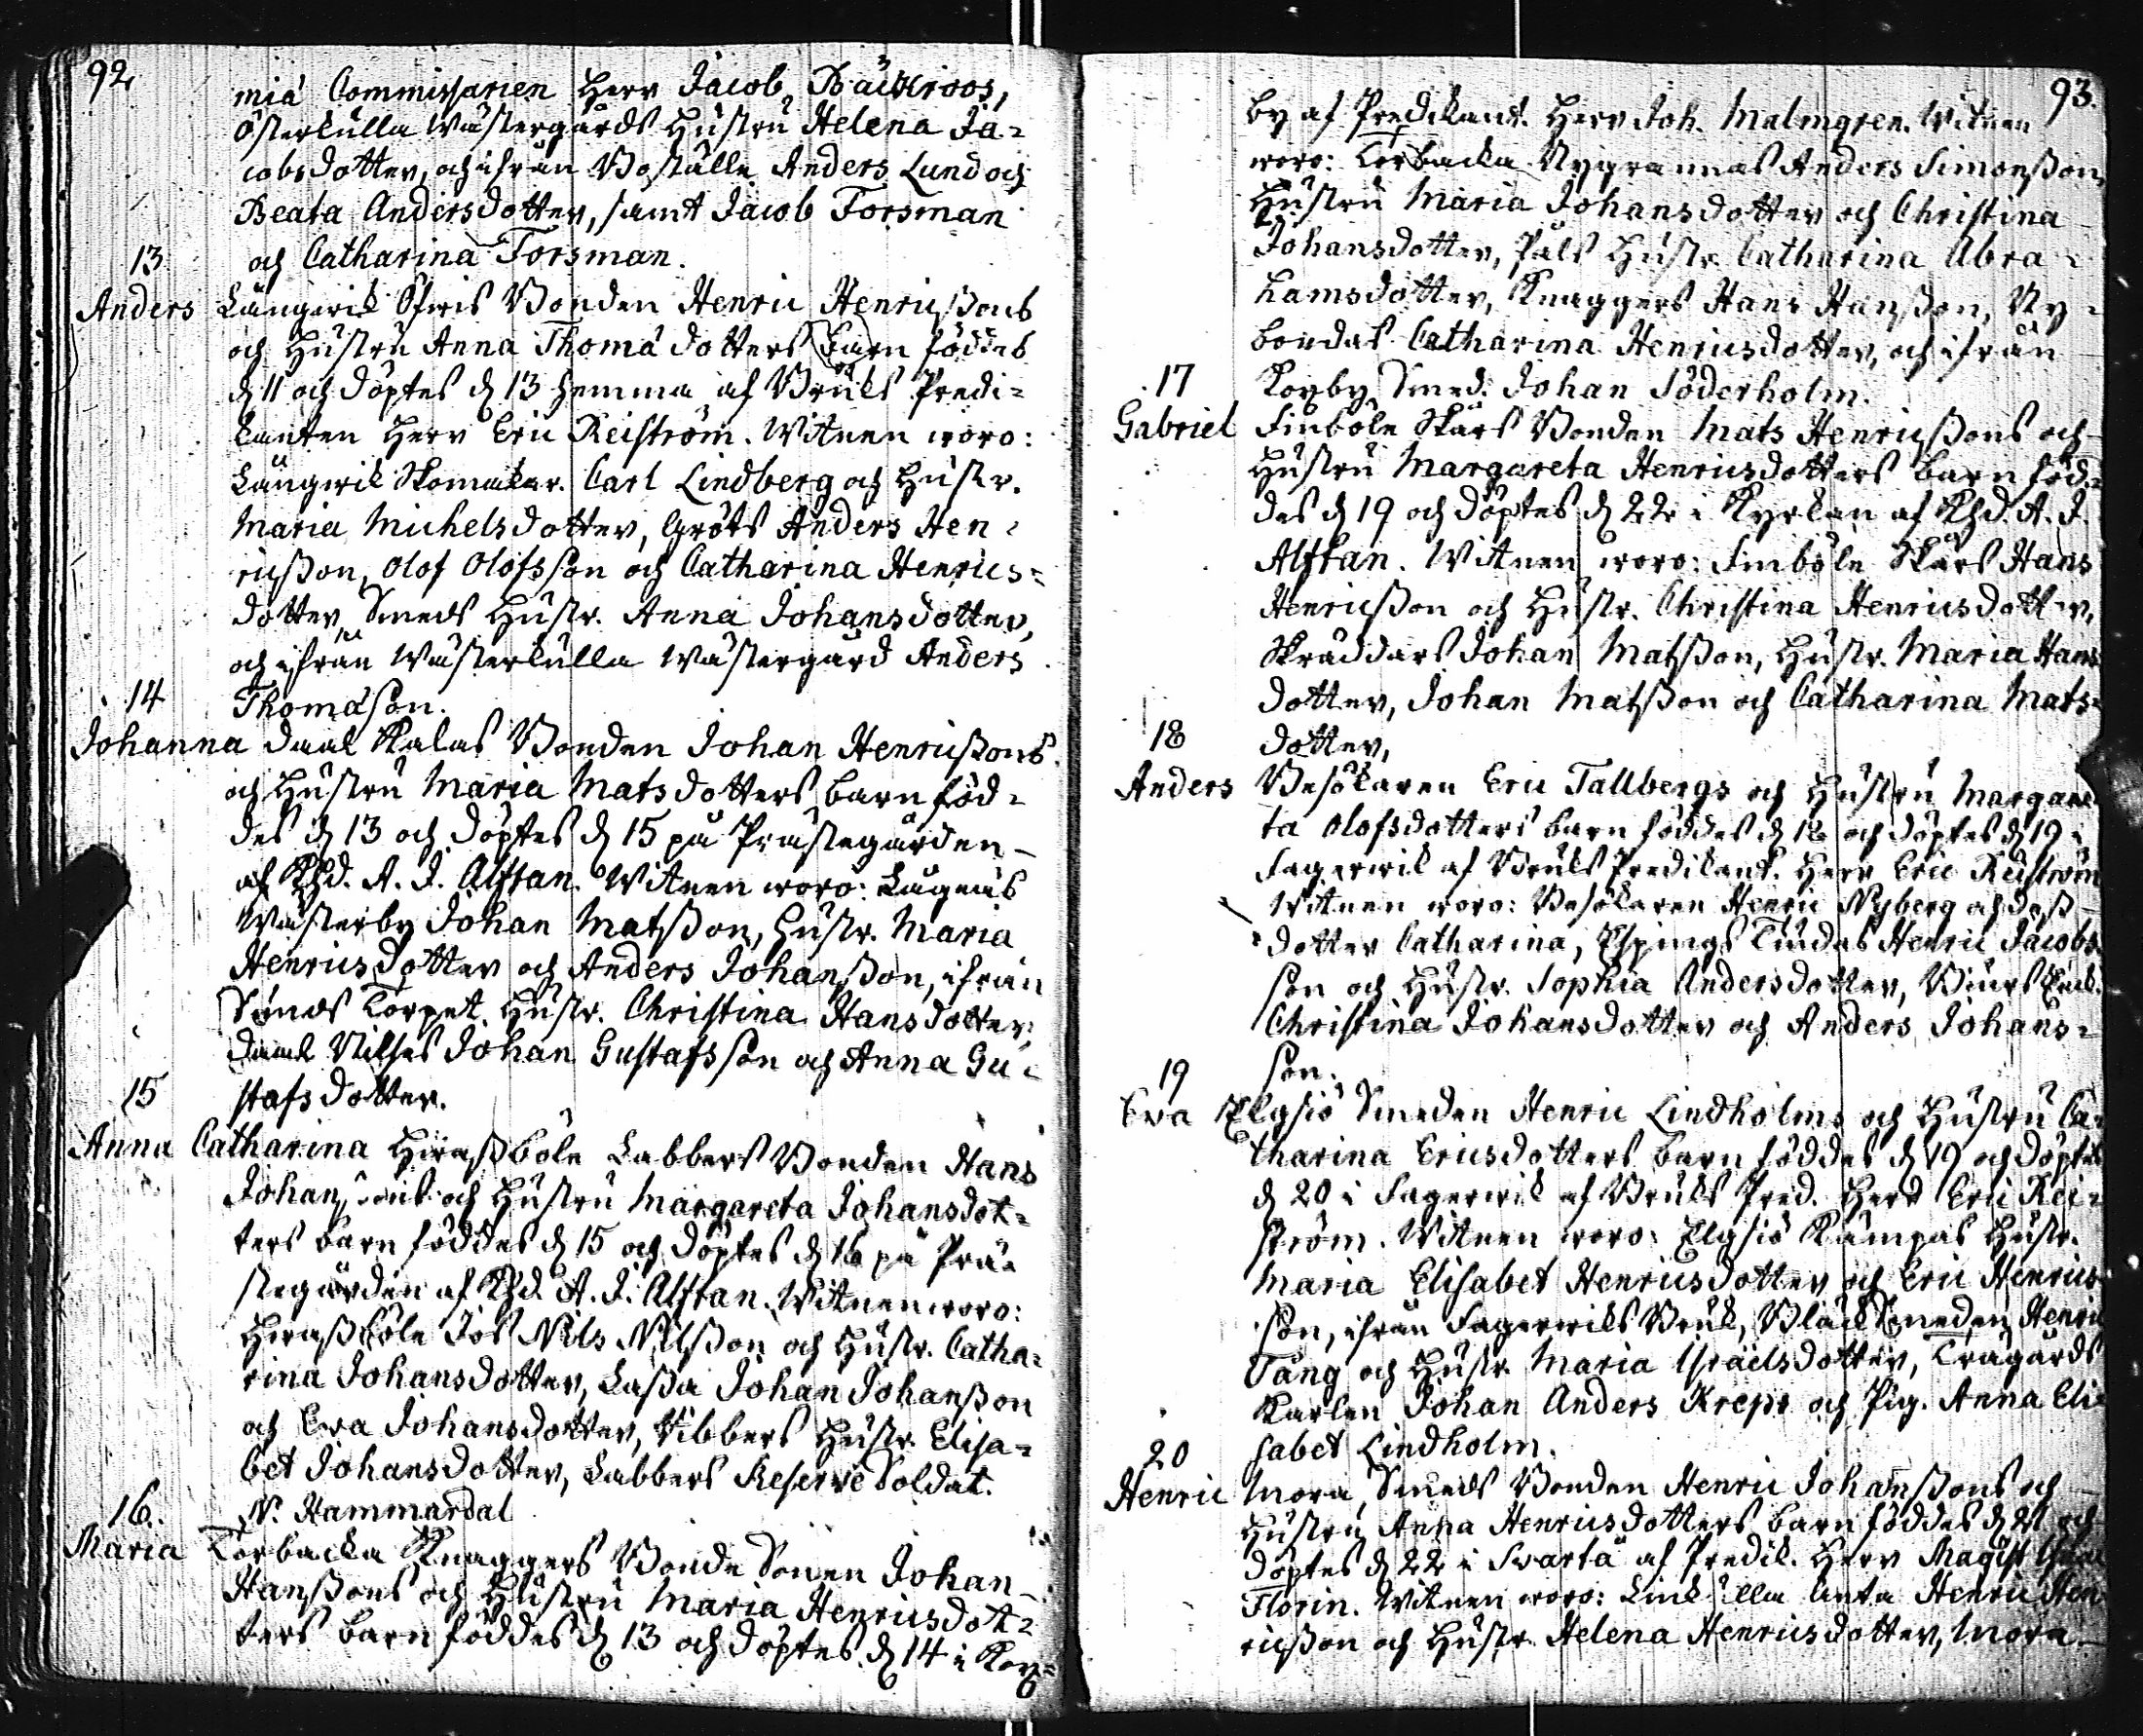 92
mia Commissarien Herr Jacob Bäckroos,
Österkulla Wästergårds Hustru Helena Ja=
cobsdotter, och ifrån Boställe Anders Lund och
Beata Andersdotter, samt Jacob Forsman
13 och Catharina Forsman.
Anders Långwik Öfwis Bonden Henric Henricßons
och Hustru Anna Thomædotters barn föddes
d 11 och döptes d 13 hemma af Bruks Predi=
kanten Herr Eric Reiström. Witnen woro:
Långwik Skomakar. Carl Lindberg och Hustr.
Maria Michelsdotter, Gröts Anders Hen=
ricßon, Olof Olofsson och Catharina Henrics=
dotter, Smeds Hustr. Anna Johansdotter,
och ifrån Wästerkulla Wästergård Anders
14 Thomæson.
Johanna Daal Skalas Bonden Johan Henricßons
och Hustru Maria Matsdotters barn föd=
des d 13 och döptes d 15 på Prästegården
af Khd. A. J. Alftan. Witnen woro: Lågnäs
Wästerby Johan Matsßon, Hustr. Maria
Henricsdotter och Anders Johansßon, ifrån
Torpet Hustr. Christina Hansdotter,
Daal Nilses Johan Gustafsson och Anna Gu=
15 stafsdotter.
Anna Catharina Hirsßböle Labbers Bonden Hans
Johansons och Hustru Margareta Johansdot=
ters barn föddes d 15 och döptes d 16 på Prä=
stegården af Khd. A. J. Alftan. Witnen woro:
Hirsßböle Jös Nils Nilsßon och Hustr. Catha=
rina Johansdotter, Laßa Johan Johanßon
och Eva Johansdotter, Vibbers Hustr. Elisa=
bet Johansdotter, Labbers Reserve Soldat.
16. N. Hammardal
Maria Torbacka Knaggers Bonde Sonen Johan
Hansßons och Hustru Maria Henricsdot=
ters barn föddes d 13 och döptes d 14 i Kor=
93.
by af Predikant. Herr Joh. Malmgren. Witnen
woro: Torbacka Nygrannas Anders Simonsßon,
Hustru Maria Johansdotter och Christina
Johansdotter, Påls Hustr. Catharina Abra=
hamsdotter, Knaggers Hans Hansßon, Ny=
bondas Catharina Henricsdotter, och ifrån
17 Korby Smed. Johan Söderholm.
Gabriel Finböle Skårs Bonden Mats Henricßons och
Hustru Margareta Henricsdotters barn föd=
des d 19 och döptes d 22 i Kyrkan af Khd. A. J.
Alftan. Witnen woro: Finböle Skårs Hans
Henricßon och Hustr. Christina Henricsdotter,
Skräddars Johan Matsßon, Hustr. Maria Hans
dotter, Johan Matsßon och Catharina Mats=
18 dotter,
Anders Besökaren Eric Tallbergs och Hustru Margare
ta Olofsdotters barn föddes d 18 och döptes d 19 i
Fagerwik af Bruks Predikant. Herr Eric Reiström
Witnen woro: Besökaren Henric Nyberg och deß
dotter Catharina, Espings Lindas Henric Jacobs
son och Hustr. Sophia Andersdotter,
Christina Johansdotter och Anders Johans=
19 son.
Eva Elgsiö Smeden Henric Lindholms och Hustru Ca=
tharina Ericsdotters barn föddes d 19 och döptes
d 20 i Fagerwik af Bruks Pred. Herr Eric Rei=
ström. Witnen woro: Elgsiö Kämpas Hustr.
Maria Elisabet Henricsdotter och Eric Henrics
son, ifrån Fagerwiks Bruk, Bläck Smeden Henric
Tång och Hustr. Maria Israelsdotter, Trägårds
Karlen Johan Anders Kreps och Pig. Anna Eli=
20 sabet Lindholm.
Henric Mora, Smeds Bonden Henric Johansßons och
Hustru Anna Henricsdotters barn föddes d 21 och
döptes d 22 i Svartå af Predik. Herr Magist
Florin. Witnen woro: Henric Hen
ricßon och Hustr. Helena Henricsdotter, Mora